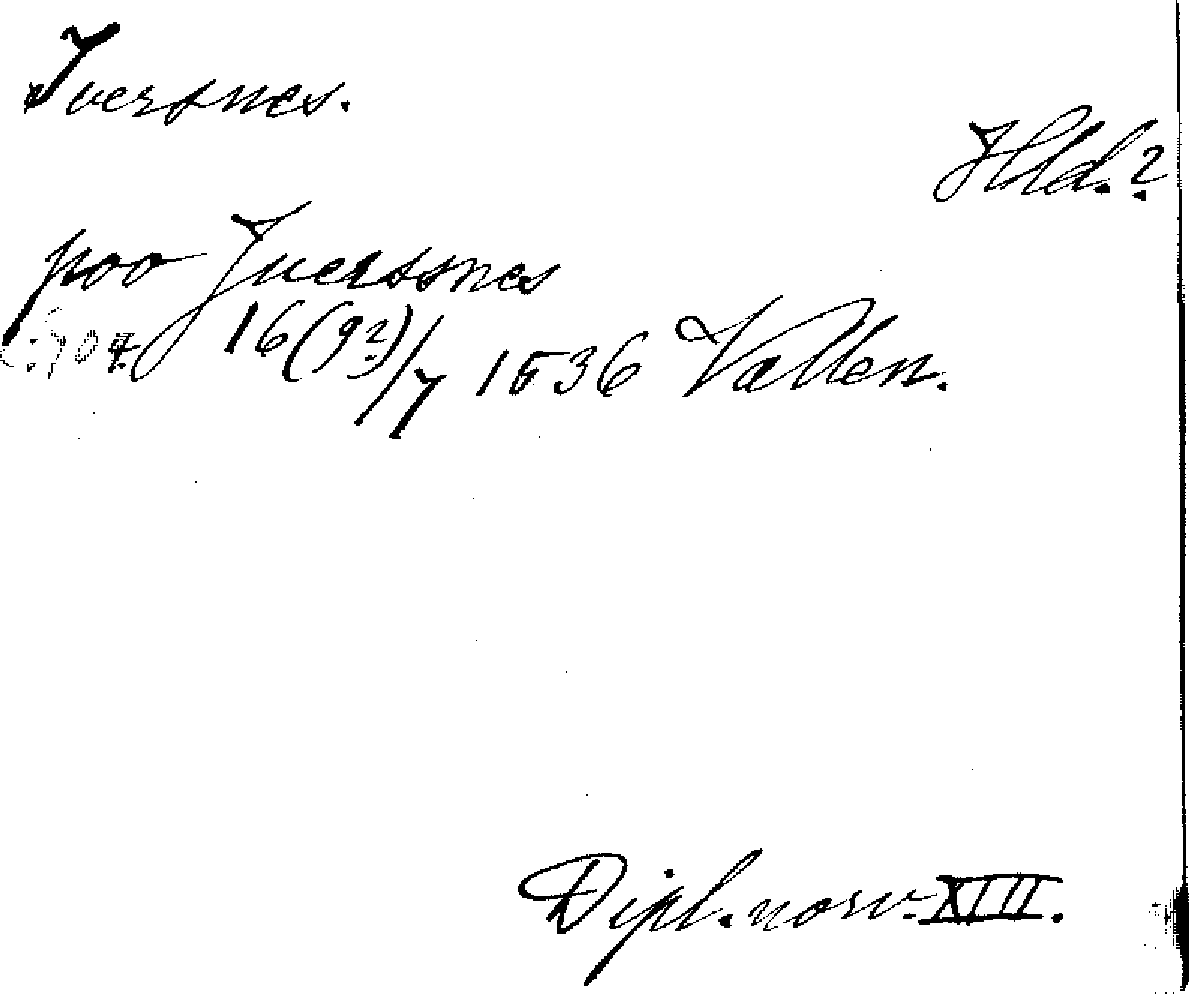 Iversnes.
Hld.?
poo Jverssnes
707. 16(9?)/7 1536 Vallen.
Dipl. norv. XIII.